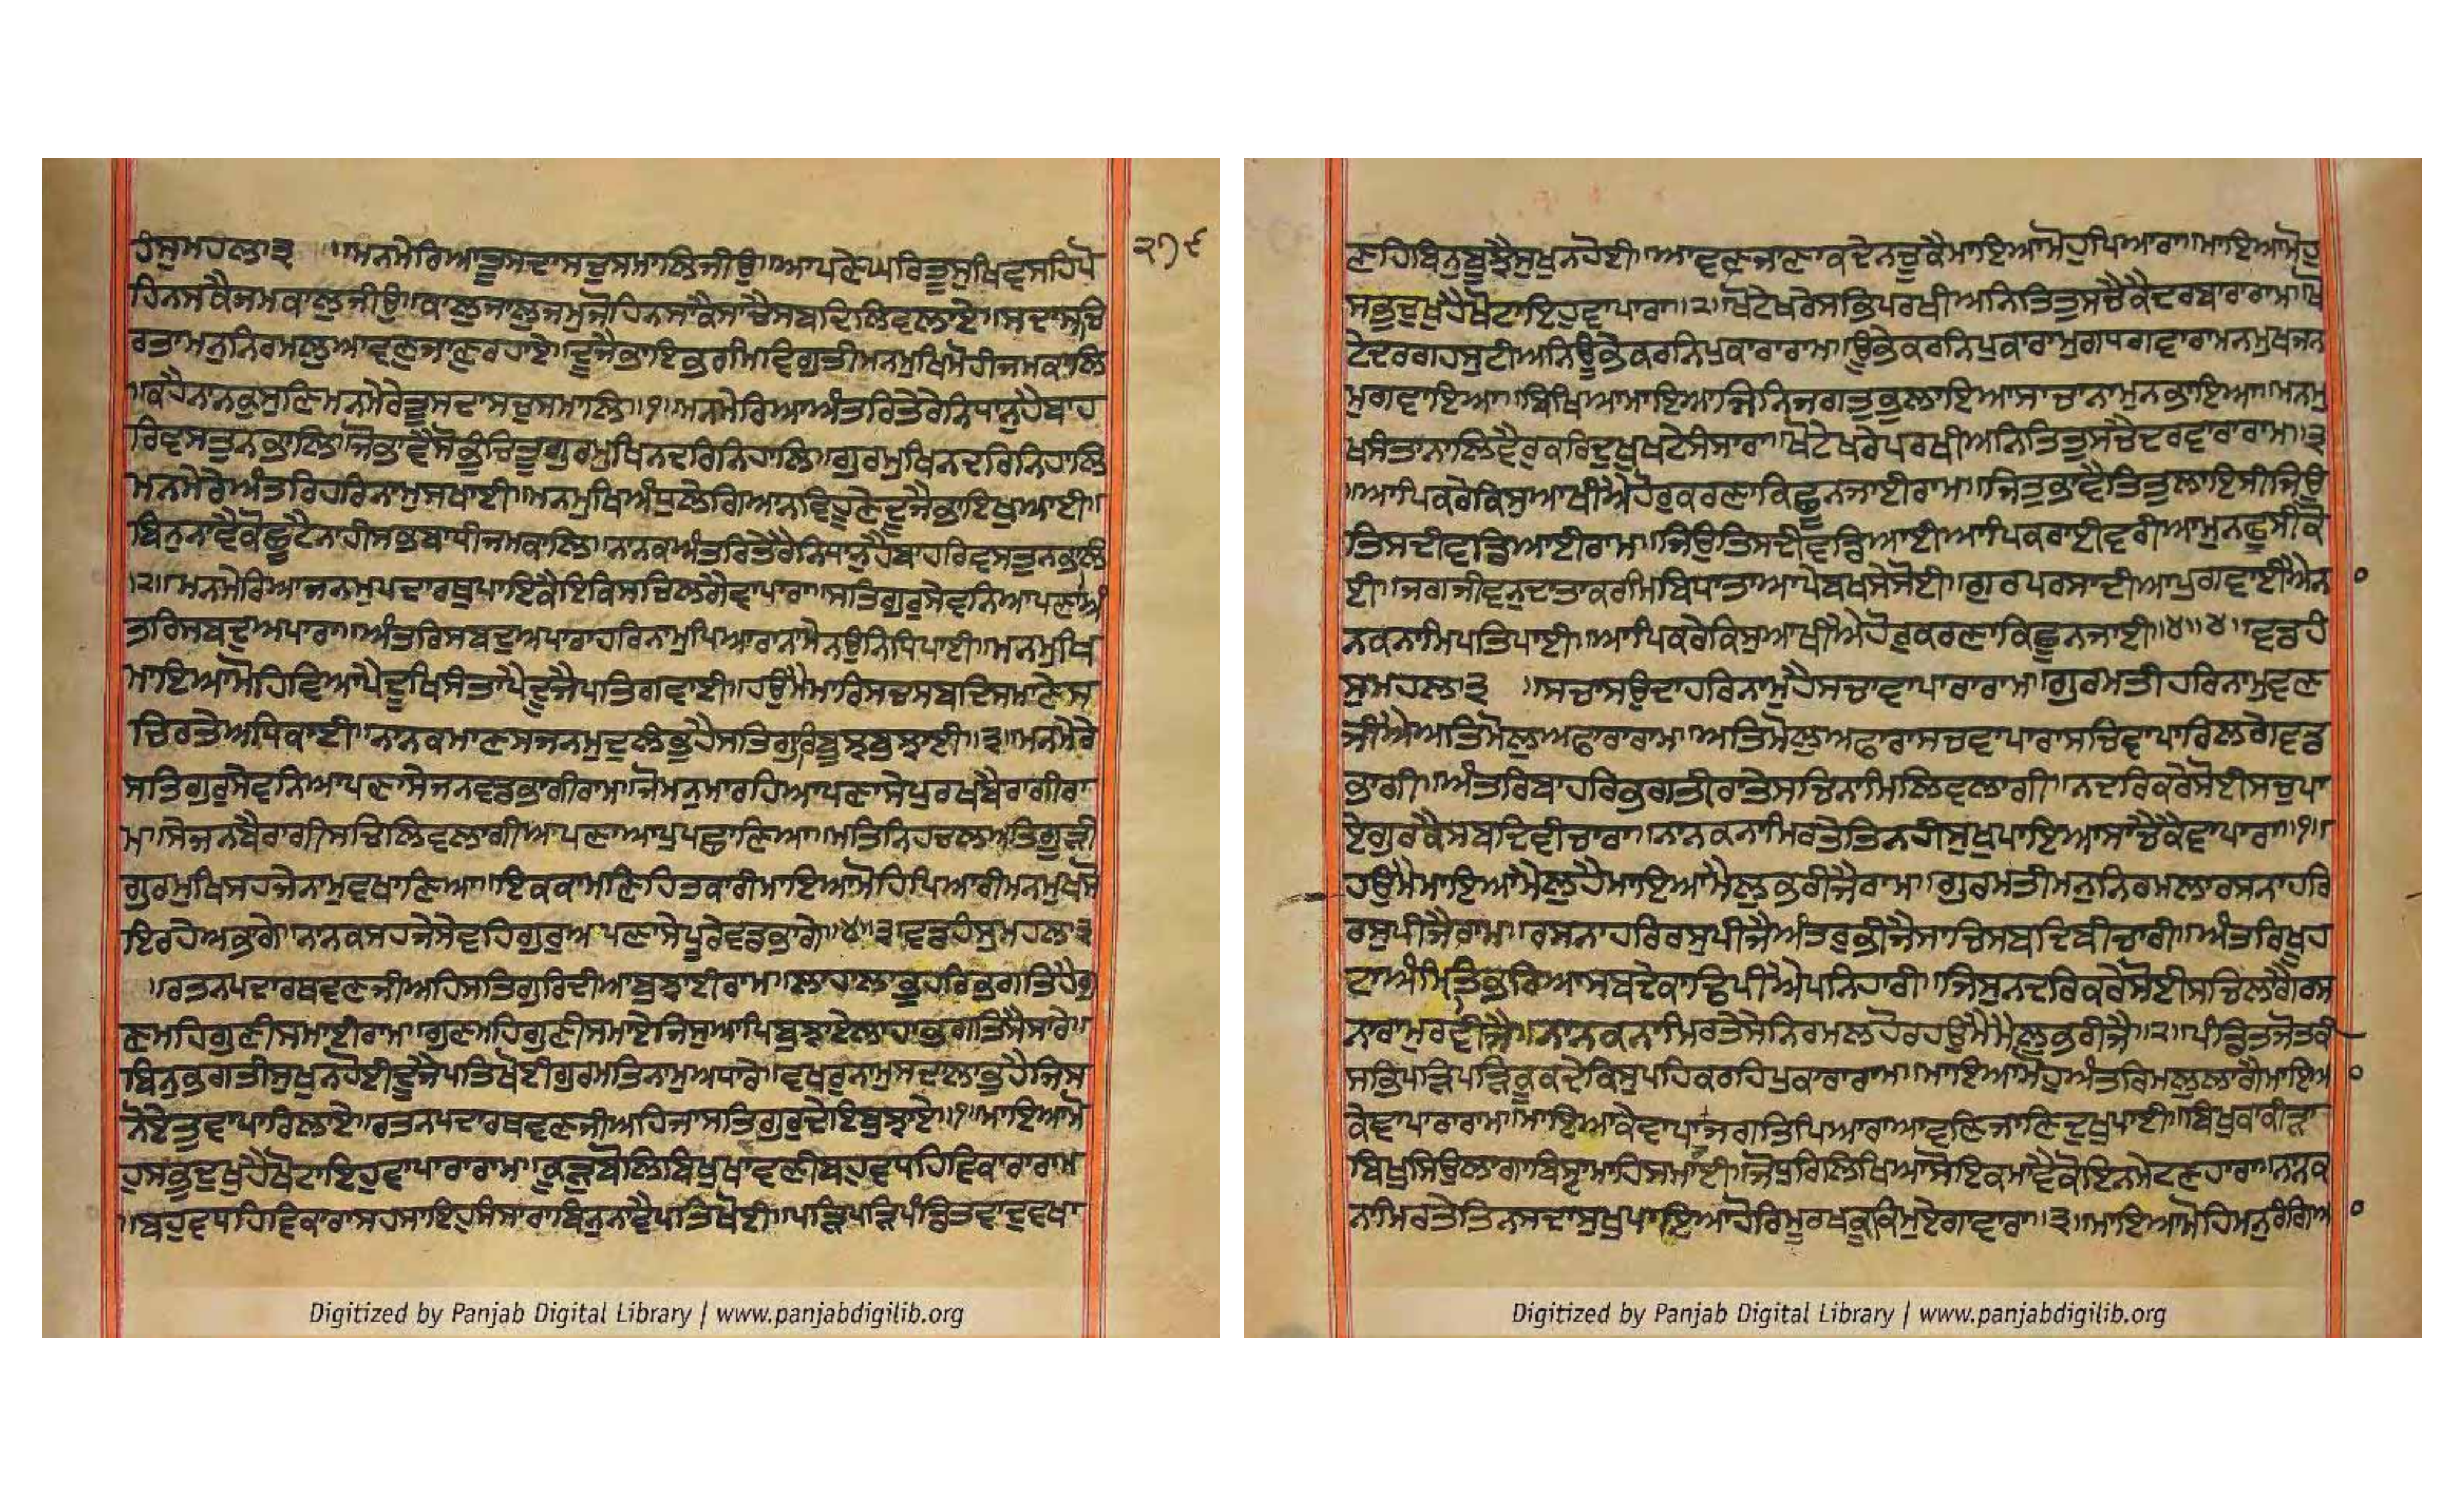 ਹੰਸੁਮਹਲਾ੩ ॥ਮਨਮੇਰਿਆਤੂਸਦਾਸਚੁਸਮਾਲਿਜੀਉ॥ਆਪਣੈਘਰਿਤੂਸੁਖਿਵਸਹਿਪੋ
ਹਿਨਸਕੈਜਮਕਾਲੁਜੀਉ॥ਕਾਲੁਜਾਲੁਜਮੁਜੋਹਿਨਸਾਕੈਸਾਚੈਸਬਦਿਲਿਵਲਾਏ॥ਸਦਾਸਚਿ
ਰਤਾਮਨੁਨਿਰਮਲੁਆਵਣਜਾਣਰਹਾਏ॥ਦੂਜੈਭਾਇਭਰਮਿਵਿਗੁਤੀਮਨਮੁਖਿਮੋਹੀਜਮਕਾਲਿ
॥ਕਹੈਨਾਨਕੁਸੁਣਿਮਨਮੇਰੇਤੂਸਦਾਸਚੁਸਮਾਲਿ॥੧॥ਮਨਮੇਰਿਆਅੰਤਰਿਤੇਰੈਨਿਧਾਨੁਹੈਬਾਹ
ਰਿਵਸਤੁਨਭਾਲਿ॥ਜੋਭਾਵੈਸੋਭੁੰਚਿਤੂਗੁਰਮੁਖਿਨਦਰਿਨਿਹਾਲਿ॥ਗੁਰਮੁਖਿਨਦਰਿਨਿਹਾਲਿ
ਮਨਮੇਰੇਅੰਤਰਿਹਰਿਨਾਮੁਸਖਾਈ॥ਮਨਮੁਖਿਅੰਧੁਲੇਗਿਆਨਵਿਹੂਣੇਦੂਜੈਭਾਇਖੁਆਈ॥
ਬਿਨੁਨਾਵੈਕੋਛੂਟੈਨਾਹੀਸਭਬਾਧੀਜਮਕਾਲਿ॥ਨਾਨਕਅੰਤਰਿਤੇਰੈਨਿਧਾਨੁਹੈਬਾਹਰਿਵਸਤੁਨਭਾਲਿ
॥੨॥ਮਨਮੇਰਿਆਜਨਮੁਪਦਾਰਥੁਪਾਇਕੈਇਕਿਸਚਿਲਗੈਵਾਪਾਰਾ॥ਸਤਿਗੁਰੁਸੇਵਨਿਆਪਣਾਅੰ
ਤਰਿਸਬਦੁਅਪਾਰਾ॥ਅੰਤਰਿਸਬਦੁਅਪਾਰਾਹਰਿਨਾਮੁਪਿਆਰਾਨਾਮੈਨਉਨਿਧਿਪਾਈ॥ਮਨਮੁਖਿ
ਮਾਇਆਮੋਹਿਵਿਆਪੈਦੂਖਿਸੰਤਾਪੈਦੂਜੈਪਤਿਗਵਾਈ॥ਹਉਮੈਮਾਰਿਸਚਸਬਦਿਸਮਾਣੇਸ
ਚਿਰਤੇਅਧਿਕਾਈ॥ਨਾਨਕਮਾਣਸਜਨਮੁਦੁਲੰਭੁਹੈਸਤਿਗੁਰਿਬੂਝਬੁਝਾਈ॥੩॥ਮਨਮੇਰੇ
ਸਤਿਗੁਰੁਸੇਵਨਿਆਪਣਾਸੇਜਨਵਡਭਾਗੀਰਾਮ॥ਜੋਮਨੁਮਾਰਹਿਆਪਣਾਸੇਪੁਰਖਬੈਰਾਗੀਰਾ
ਮ॥ਸੇਜਨਬੈਰਾਗੀਸਚਿਲਿਵਲਾਗੀਆਪਣਾਆਪੁਪਛਾਣਿਆ॥ਮਤਿਨਿਹਚਲਅਤਿਗੂੜੀ
ਗੁਰਮੁਖਿਸਹਜੇਨਾਮੁਵਖਾਣਿਆ॥ਇਕਕਾਮਣਿਹਿਤਕਾਰੀਮਾਇਆਮੋਹਿਪਿਆਰੀਮਨਮੁਖਸੋ
ਇਰਹੇਅਭਾਗੇ॥ਨਾਨਕਸਹਜੇਸੇਵਹਿਗੁਰੁਅਪਣਾਸੇਪੂਰੇਵਡਭਾਗੇ॥੪॥੩॥ਵਡਹੰਸੁਮਹਲਾ੩
॥ਰਤਨਪਦਾਰਥਵਣਜੀਅਹਿਸਤਿਗੁਰਿਦੀਆਬੁਝਾਈਰਾਮ॥ਲਾਹਾਲਾਭੁਹਰਿਭਗਤਿਹੈਗੁ
ਣਮਹਿਗੁਣੀਸਮਾਈਰਾਮ॥ਗੁਣਮਹਿਗੁਣੀਸਮਾਏਜਿਸੁਆਪਿਬੁਝਾਏਲਾਹਾਭਗਤਿਸੈਸਾਰੇ॥
ਬਿਨੁਭਗਤੀਸੁਖੁਨਹੋਈਦੂਜੈਪਤਿਖੋਈਗੁਰਮਤਿਨਾਮੁਅਧਾਰੇ॥ਵਖਰੁਨਾਮੁਸਦਲਾਭੁਹੈਜਿਸ
ਨੋਏਤੁਵਾਪਾਰਿਲਾਏ॥ਰਤਨਪਦਾਰਥਵਣਜੀਅਹਿਜਾਸਤਿਗੁਰੁਦੇਇਬੁਝਾਏ॥੧॥ਮਾਇਆਮੋ
ਹੁਸਭੁਦੁਖੁਹੈਖੋਟਾਇਹੁਵਾਪਾਰਾਰਾਮ॥ਕੂੜੁਬੋਲਿਬਿਖੁਖਾਵਣੀਬਹੁਵਧਹਿਵਿਕਾਰਾਰਾਮ
॥ਬਹੁਵਧਹਿਵਿਕਾਰਾਸਹਸਾਇਹੁਸੰਸਾਰਾਬਿਨੁਨਾਵੈਪਤਿਖੋਈ॥ਪੜਿਪੜਿਪੰਡਿਤਵਾਦੁਵਖਾ
੨੭੬
ਣਹਿਬਿਨੁਬੂਝੈਸੁਖੁਨਹੋਈ॥ਆਵਣਜਾਣਾਕਦੇਨਚੂਕੈਮਾਇਆਮੋਹੁਪਿਆਰਾ॥ਮਾਇਆਮੋਹੁ
ਸਭੁਦੁਖੁਹੈਖੋਟਾਇਹੁਵਾਪਾਰਾ॥੨॥ਖੋਟੇਖਰੇਸਭਿਪਰਖੀਅਨਿਤਿਤੁਸਚੈਕੈਦਰਬਾਰਾਰਾਮ॥ਖੋ
ਟੇਦਰਗਹਸੁਟੀਅਨਿਊਭੇਕਰਨਿਪੁਕਾਰਾਰਾਮ॥ਊਭੇਕਰਨਿਪੁਕਾਰਾਮੁਗਧਗਵਾਰਾਮਨਮੁਖਜਨ
ਮੁਗਵਾਇਆ॥ਬਿਖਿਆਮਾਇਆਜਿਨਿਜਗਤੁਭੁਲਾਇਆਸਾਚਾਨਾਮੁਨਭਾਇਆ॥ਮਨਮੁ
ਖਸੰਤਾਨਾਲਿਵੈਰੁਕਰਿਦੁਖੁਖਟੇਸੰਸਾਰਾ॥ਖੋਟੇਖਰੇਪਰਖੀਅਨਿਤਿਤੁਸਚੈਦਰਵਾਰਾਰਾਮ॥੩
॥ਆਪਿਕਰੇਕਿਸੁਆਖੀਐਹੋਰੁਕਰਣਾਕਿਛੂਨਜਾਈਰਾਮ॥ਜਿਤੁਭਾਵੈਤਿਤੁਲਾਇਸੀਜਿਉ
ਤਿਸਦੀਵਡਿਆਈਰਾਮ॥ਜਿਉਤਿਸਦੀਵਡਿਆਈਆਪਿਕਰਾਈਵਰੀਆਮੁਨਫੁਸੀਕੋ
ਈ॥ਜਗਜੀਵਨੁਦਾਤਾਕਰਮਿਬਿਧਾਤਾਆਪੇਬਖਸੇਸੋਈ॥ਗੁਰਪਰਸਾਦੀਆਪੁਗਵਾਈਐਨ
ਨਕਨਾਮਿਪਤਿਪਾਈ॥ਆਪਿਕਰੇਕਿਸੁਆਖੀਐਹੋਰੁਕਰਣਾਕਿਛੂਨਜਾਈ॥੪॥੪॥ਵਡਹੰ
ਸੁਮਹਲਾ੩ ॥ਸਚਾਸਉਦਾਹਰਿਨਾਮੁਹੈਸਚਾਵਾਪਾਰਾਰਾਮ॥ਗੁਰਮਤੀਹਰਿਨਾਮੁਵਣ
ਜੀਐਅਤਿਮੋਲੁਅਫਾਰਾਰਾਮ॥ਅਤਿਮੋਲੁਅਫਾਰਾਸਚਵਾਪਾਰਾਸਚਿਵਾਪਾਰਿਲਗੇਵਡ
ਭਾਗੀ॥ਅੰਤਰਿਬਾਹਰਿਭਗਤੀਰਾਤੇਸਚਿਨਾਮਿਲਿਵਲਾਗੀ॥ਨਦਰਿਕਰੇਸੋਈਸਚੁਪਾ
ਏਗੁਰਕੈਸਬਦਿਵੀਚਾਰਾ॥ਨਾਨਕਨਾਮਿਰਤੇਤਿਨਹੀਸੁਖੁਪਾਇਆਸਾਚੈਕੇਵਾਪਾਰਾ॥੧॥
ਹੰਉਮੈਮਾਇਆਮੈਲੁਹੈਮਾਇਆਮੈਲੁਭਰੀਜੈਰਾਮ॥ਗੁਰਮਤੀਮਨੁਨਿਰਮਲਾਰਸਨਾਹਰਿ
ਰਸੁਪੀਜੈਰਾਮ॥ਰਸਨਾਹਰਿਰਸੁਪੀਜੈਅੰਤਰੁਭੀਜੈਸਾਚਿਸਬਦਿਬੀਚਾਰੀ॥ਅੰਤਰਿਖੂਹ
ਟਾਅੰਮ੍ਰਿਤਿਭਰਿਆਸਬਦੇਕਾਢਿਪੀਐਪਨਿਹਾਰੀ॥ਜਿਸੁਨਦਰਿਕਰੇਸੋਈਸਚਿਲਾਗੈਰਸ
ਨਾਰਾਮੁਰਵੀਜੈ॥ਨਾਨਕਨਾਮਿਰਤੇਸੇਨਿਰਮਲਹੋਰਹਉਮੈਮੈਲੁਭਰੀਜੈ॥੨॥ਪੰਡਿਤਜੋਤਕੀ
ਸਭਿਪੜਿਪੜਿਕੂਕਦੇਕਿਸੁਪਹਿਕਰਹਿਪੁਕਾਰਾਰਾਮ॥ਮਾਇਆਮੋਹੁਅੰਤਰਿਮਲੁਲਾਗੈਮਾਇਆ
ਕੇਵਾਪਾਰਾਰਾਮ॥ਮਾਇਆਕੇਵਾਪਾਰਾਜਗਤਿਪਿਆਰਾਆਵਣਿਜਾਣਿਦੁਖੁਪਾਈ॥ਬਿਖੁਕਾਕੀੜਾ
ਬਿਖੁਸਿਉਲਾਗਾਬਿਸ੍ਟਾਮਾਹਿਸਮਾਈ॥ਜੋਧੁਰਿਲਿਖਿਆਸੋਇਕਮਾਵੈਕੋਇਨਮੇਟਣਹਾਰਾ॥ਨਾਨਕ
ਨਾਮਿਰਤੇਤਿਨਸਦਾਸੁਖੁਪਾਇਆਹੋਰਿਮੂਰਖਕੂਕਿਮੁਏਗਾਵਾਰਾ॥੩॥ਮਾਇਆਮੋਹਿਮਨੁਰੰਗਿਆ
Digitized by Panjab Digital Library | www.panjabdigilib.org
Digitized by Panjab Digital Library | www.panjabdigilib.org